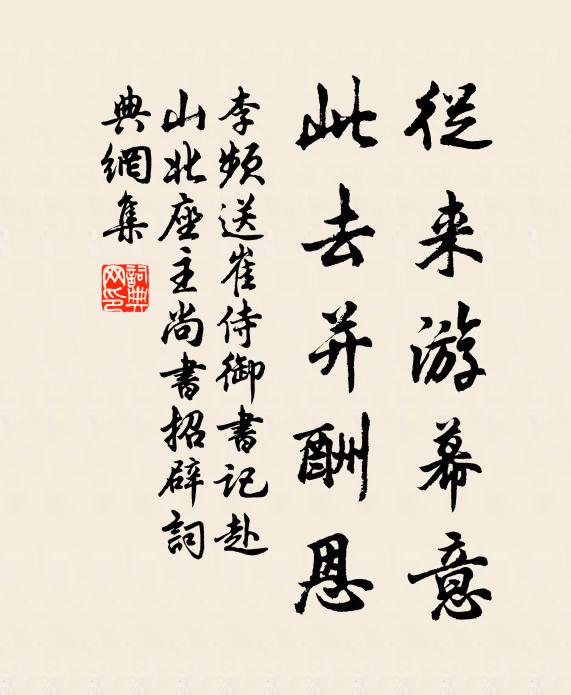 從来游幕意
此去并酬恩
李频送崔侍御書記赴
山北座主尚書招辟詞
典網集
詞典
网印